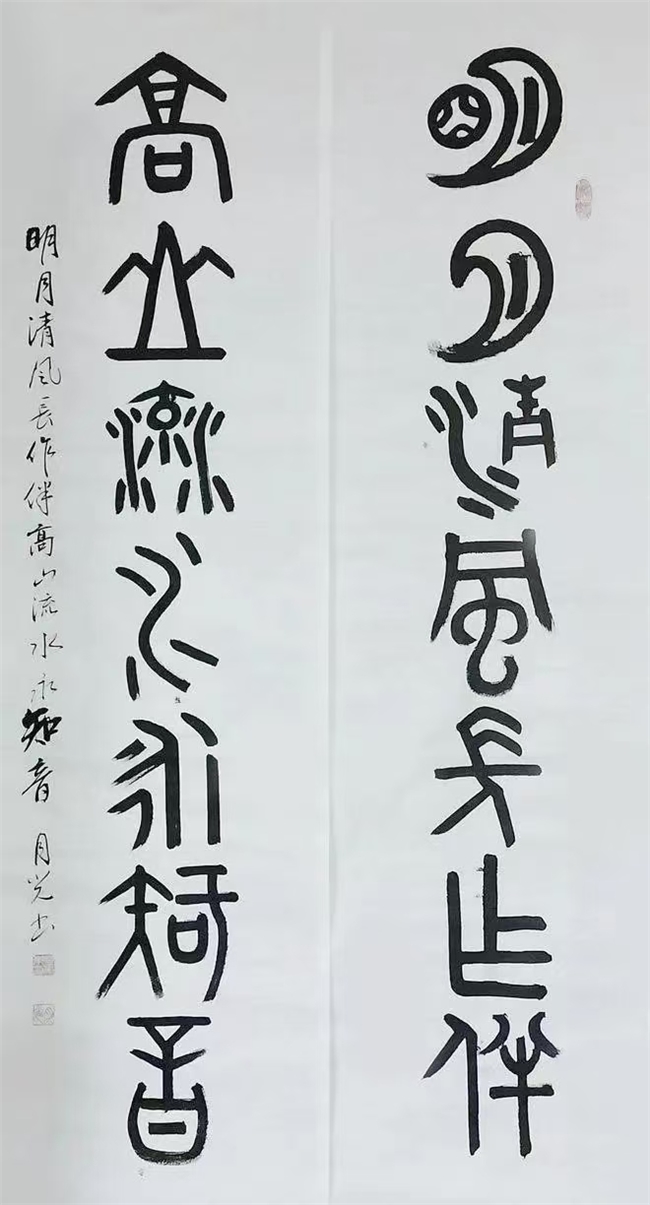 明月清風長作伴
高山流水永知音
明月清風長作伴高山流水永知音 月光书